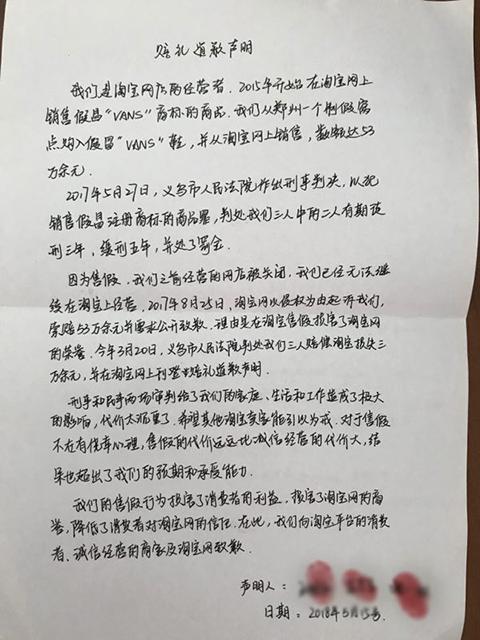 赔礼道歉声明
我们是淘宝网店的经营者. 2015年开始在淘宝网上
销售假冒“VANS”商标的商品. 我们从郑州一个制假窝
点购入假冒“VANS”鞋, 并从淘宝网上销售, 数额达53
万余元.
2017年5月27日, 义乌市人民法院作出刑事判决, 以犯
销售假冒注册商标的商品罪, 判处我们三人中的二人有期徒
刑三年, 缓刑五年, 并处了罚金.
因为售假. 我们之前经营的网店被关闭, 我们已经无法继
续在淘宝上经营. 2017年8月25日, 淘宝网以侵权为由起诉我们,
索赔53万余元并要求公开致歉. 理由是在淘宝售假损害了淘宝网
的荣誉. 今年3月20日, 义乌市人民法院判处我们三人赔偿淘宝损失三
万余元, 并在淘宝网上刊登赔礼道歉声明.
刑事和民事两场审判给了我们的家庭、生活和工作造成了极大
的影响, 代价太沉重了. 希望其他淘宝卖家能引以为戒. 对于售假
不在有侥幸心理, 售假的代价远远比诚信经营的代价大, 结
果也超出了我们的预期和承受能力.
我们的售假行为损害了消费者的利益. 损害了淘宝网的商
誉, 降低了消费者对淘宝网的信任. 在此, 我们向淘宝平台的消费
者、诚信经营的商家及淘宝网致歉.
声明人:
日期: 2018年5月15号.